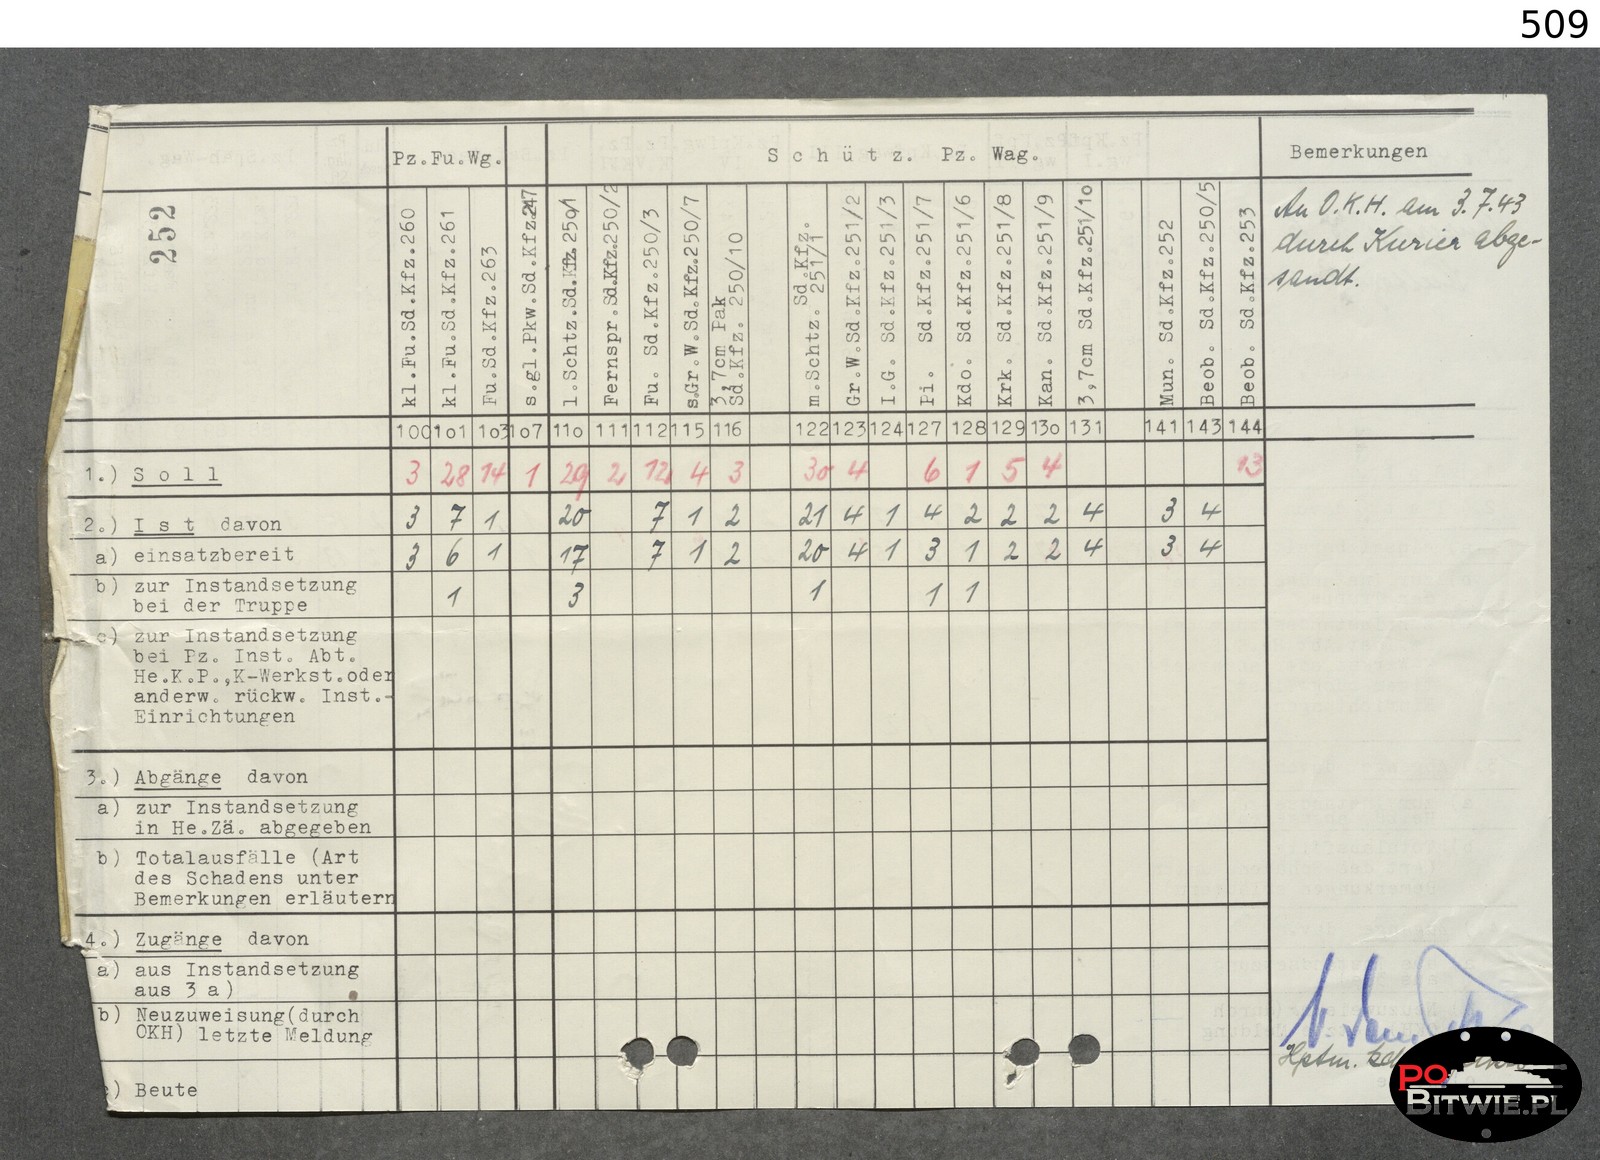 509
Pz.Fu.Wg.
Schütz. Pz. Wag.
Bemerkungen
252
kl.Fu.Sd.Kfz.260
kl.Fu.Sd.Kfz.261
Fu.Sd.Kfz.263
s.gl.Pkw.Sd.Kfz.247
l.Schtz.Sd.Kfz.250/1
Fernspr.Sd.Kfz.250/2
Fu. Sd.Kfz.250/3
s.Gr.W.Sd.Kfz.250/7
3,7cm Pak
Sd.Kfz. 250/10
m.Schtz. Sd.Kfz.
251/1
Gr.W.Sd.Kfz.251/2
I.G. Sd.Kfz.251/3
Pi. Sd.Kfz.251/7
Kdo. Sd.Kfz.251/6
Krk. Sd.Kfz.251/8
Kan. Sd.Kfz.251/9
3,7cm Sd.Kfz.251/10
Mun. Sd.Kfz.252
Beob. Sd.Kfz.250/5
Beob. Sd.Kfz.253
An O.K.H. am 3.7.43
durch Kurier abge-
sandt.
100 101 103 107 110 111 112 115 116 122 123 124 127 128 129 130 131 141 143 144
1.) Soll 3 28 14 1 29 2 12 4 3 30 4 6 1 5 4 13
2.) Ist davon 3 7 1 20 7 1 2 21 4 1 4 2 2 2 4 3 4
a) einsatzbereit 3 6 1 17 7 1 2 20 4 1 3 1 2 2 4 3 4
b) zur Instandsetzung
bei der Truppe 1 3 1 1 1
c) zur Instandsetzung
bei Pz. Inst. Abt.
He.K.P.,K-Werkst.oder
anderw. rückw. Inst.-
Einrichtungen
3.) Abgänge davon
a) zur Instandsetzung
in He.Zä. abgegeben
b) Totalausfälle (Art
des Schadens unter
Bemerkungen erläutern
4.) Zugänge davon
a) aus Instandsetzung
aus 3 a)
b) Neuzuweisung(durch
OKH) letzte Meldung
) Beute
Hptm.
PO
BITWIE.PL